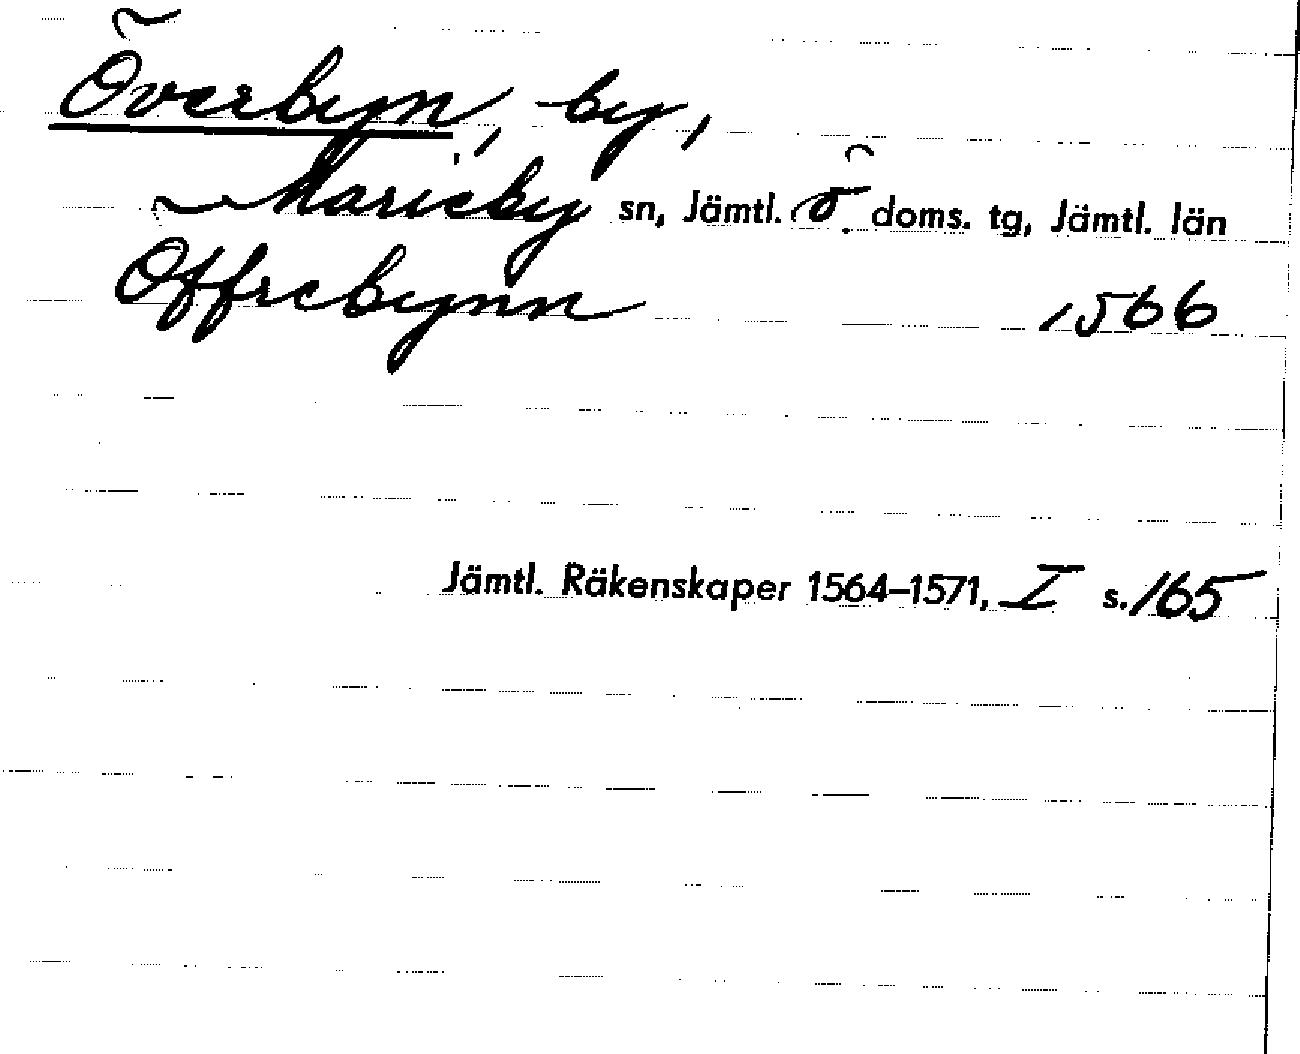 Överbyn, by,
Marieby sn, Jämtl. ö. doms. tg, Jämtl. län
Offrebynn 1566
Jämtl. Räkenskaper 1564–1571, I s. 165